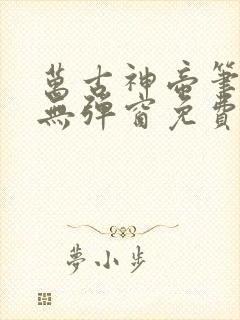 萬古神帝筆
無彈窗免費
夢小步